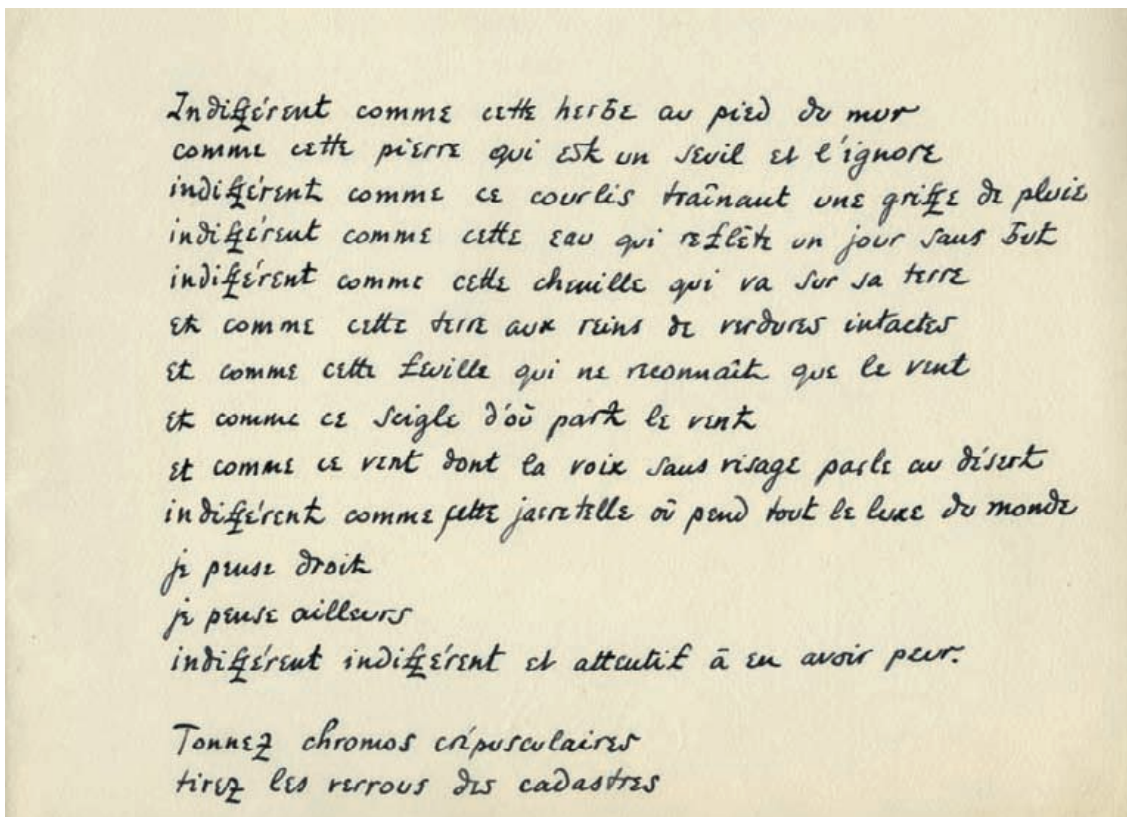 Indifférent comme cette herbe au pied du mur
comme cette pierre qui est un seuil et l'ignore
indifférent comme ce courlis traînant une griffe de pluie
indifférent comme cette eau qui reflète un jour sans but
indifférent comme cette chenille qui va sur sa terre
et comme cette terre aux reins de verdures intactes
et comme cette feuille qui ne reconnaît que le vent
et comme ce seigle d'où part le vent
et comme ce vent dont la voix sans visage parle au désert
indifférent comme cette jarretelle où pend tout le luxe du monde
je pense droit
je pense ailleurs
indifférent indifférent et attentif à en avoir peur.
Tonnez chromos crépusculaires
tirez les verrous des cadastres